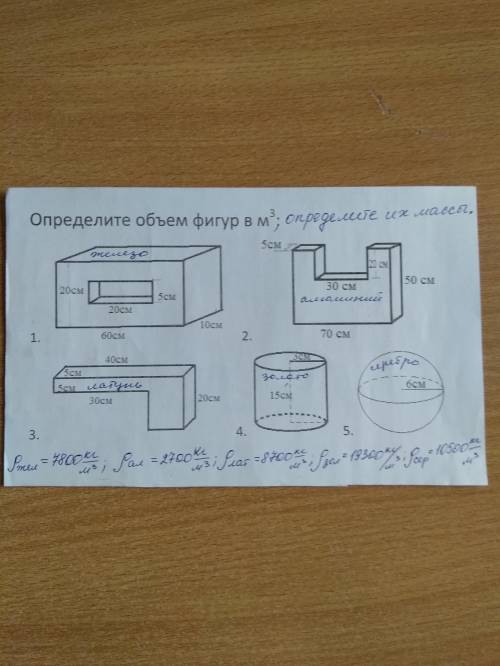 Определите объем фигур в м³; определите их массы.
железо
20см
5см
20см
10см
60см
1.
5см
22 см
30 см
алюминий
50 см
70 см
2.
40см
5см
5см
латунь
30см
20см
3.
3см
золото
15см
4.
серебро
6см
5.
ρжел = 7800 кг/м³; ρал = 2700 кг/м³; ρлат = 8700 кг/м³; ρзол = 19300 кг/м³; ρсер = 10500 кг/м³